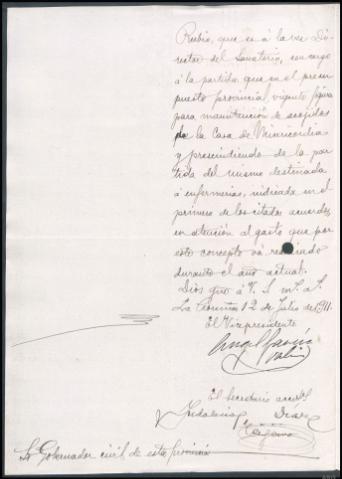 Rubio, que es á la vez Di-
rector del Sanatorio, con cargo
á la partida que en el presu-
puesto provincial vigente figura
para manutención de acogidos
de la Casa de Misericordia
y prescindiendo de la par-
tida del mismo destinada
á enfermerías, indicada en el
primero de los citados acuerdos,
en atención al gasto que por
este concepto vá realizado
durante el año actual.
Dios gue á V. S. m. a. s.
La Coruña 12 de Julio de 1911.
El Vicepresidente
Angel García
El Secretario accidal
Sr Gobernador civil de esta provincia